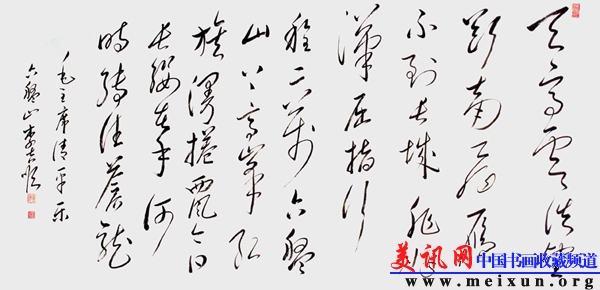 天高雲淡望
断南飞雁
不到长城非好
漢屈指行
程二万六盤
山上高峰红
旗漫捲西風今日
长缨在手何
时缚住蒼龍
毛主席清平乐
六盤山
美讯网 中国书画收藏频道
www.meixun.org